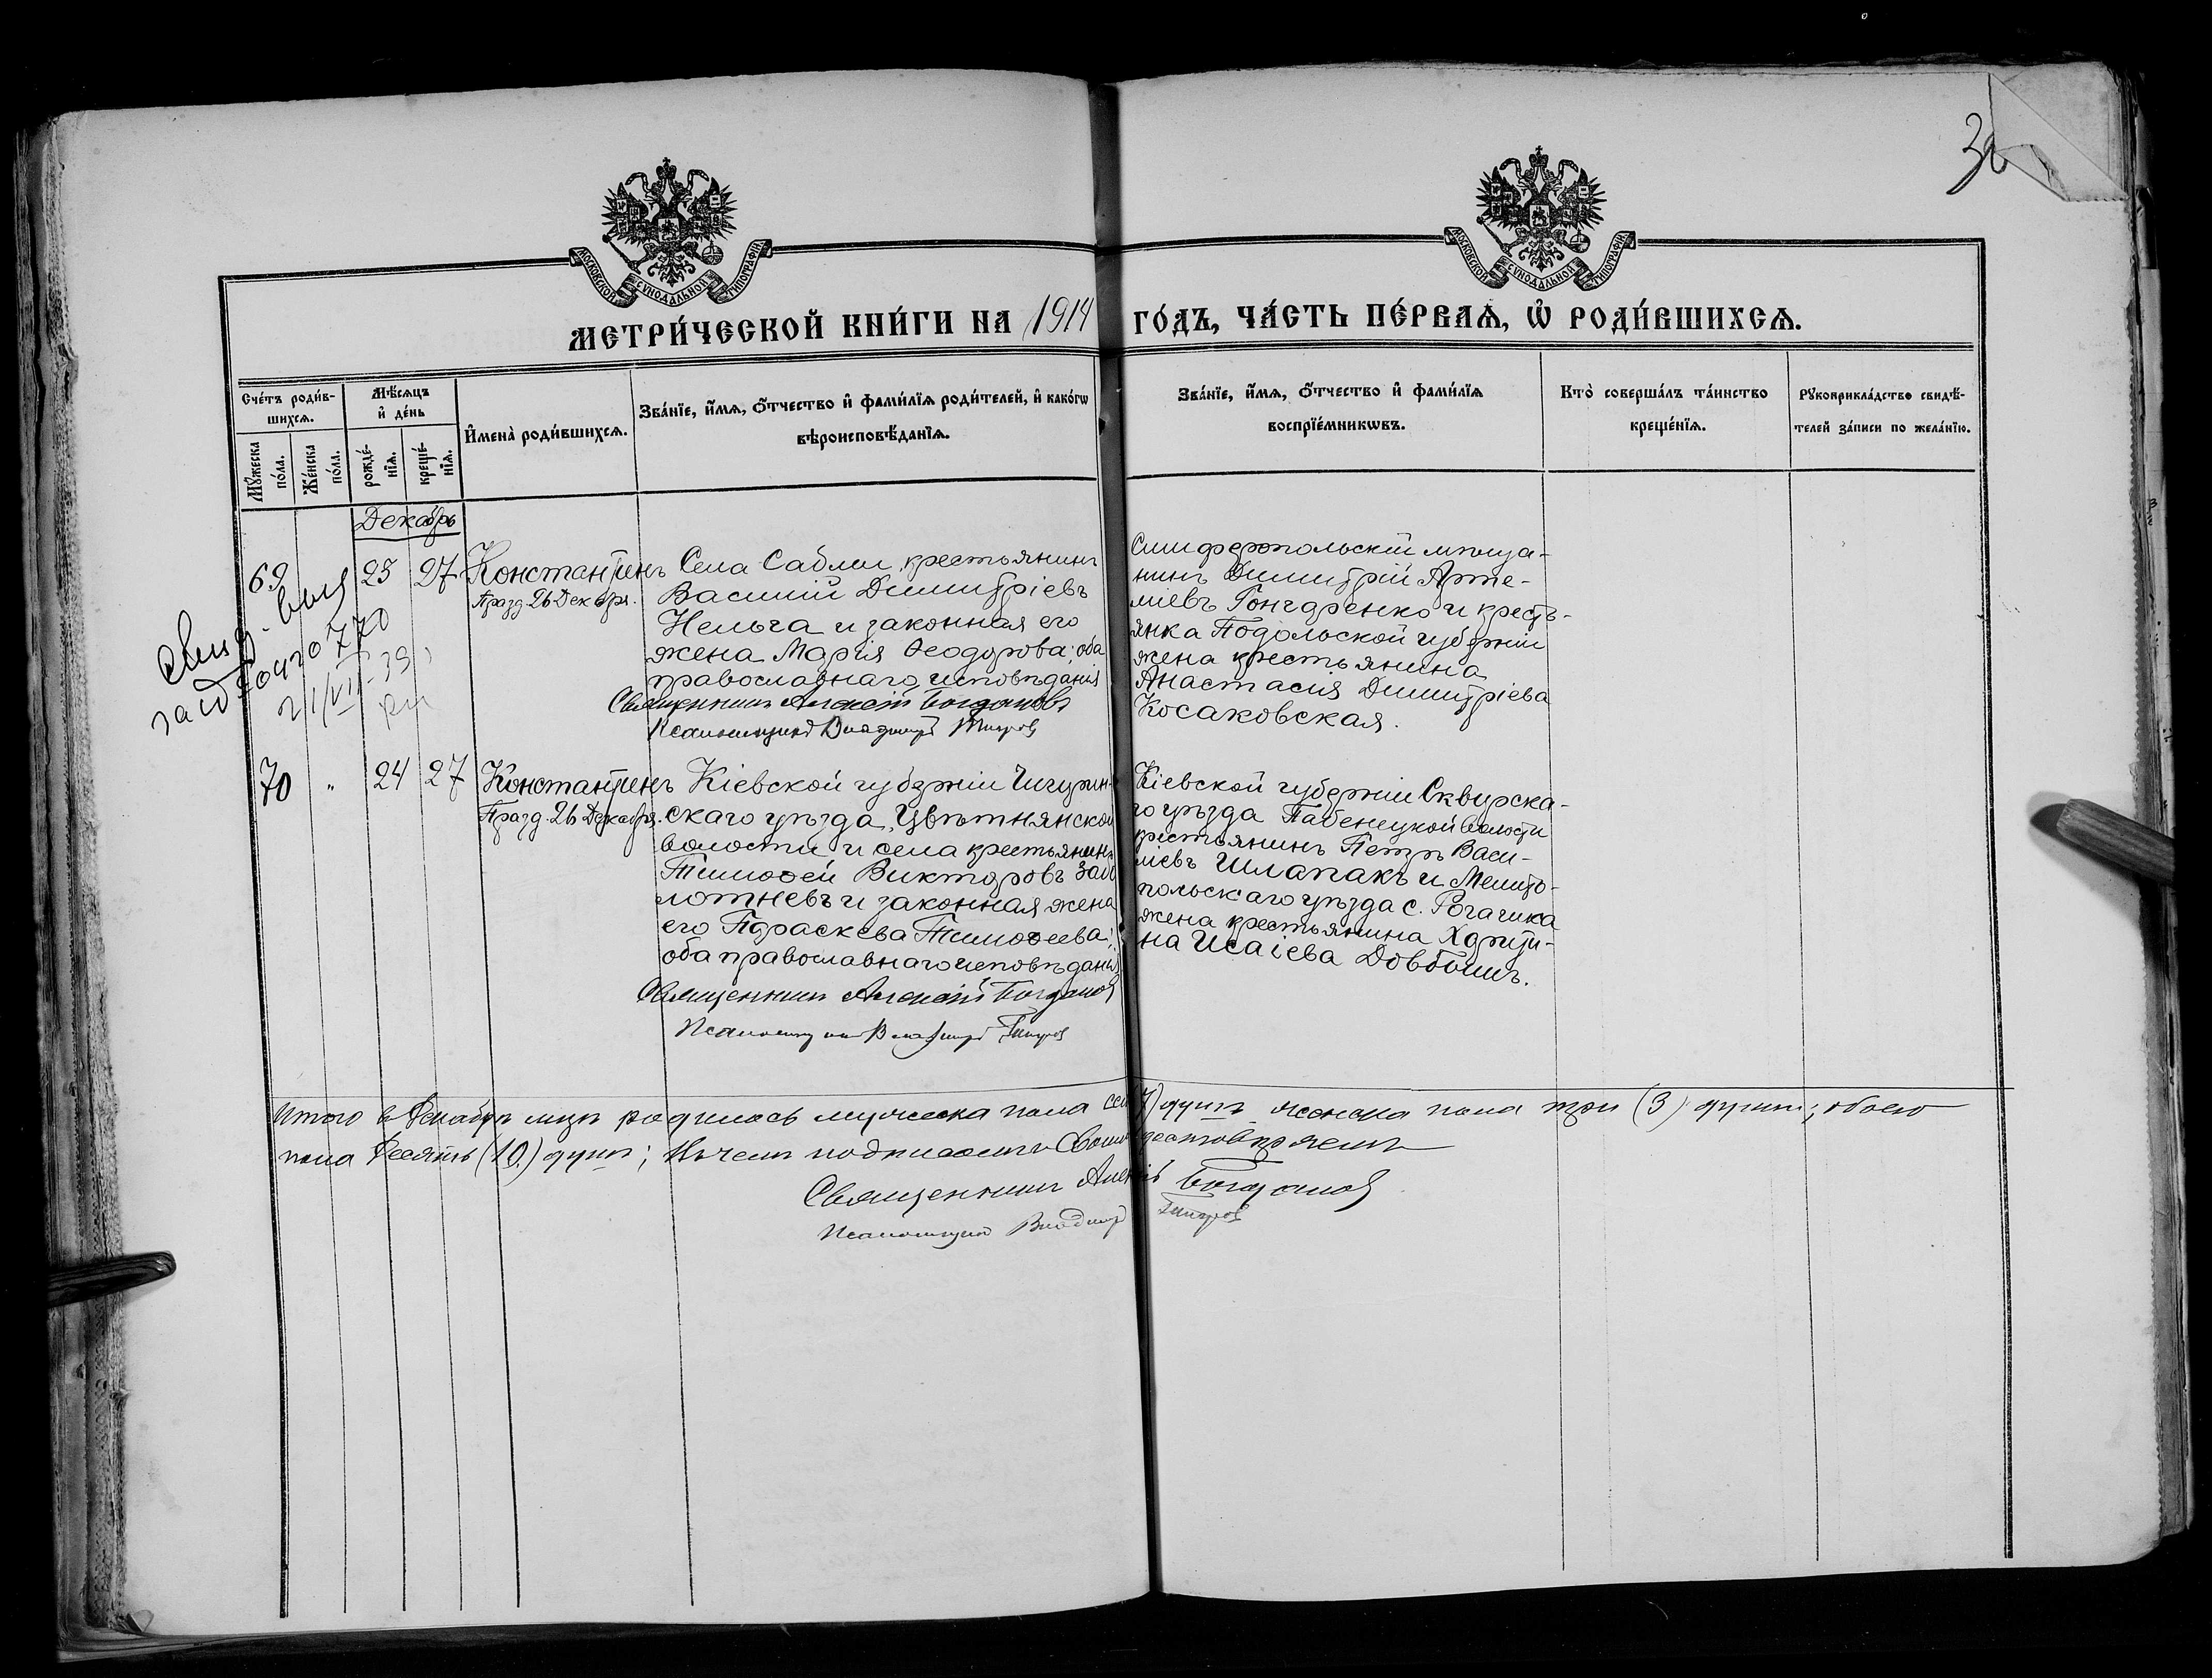 МОСКОВСКОЙ СѴНОДАЛЬНОЙ ТИПОГРАФІИ
МОСКОВСКОЙ СѴНОДАЛЬНОЙ ТИПОГРАФІИ
МЕТРИ́ЧЕСКОЙ КНИ́ГИ НА 1914 ГО́ДЪ, ЧА́СТЬ ПЕ́РВАѦ, Ѡ҆ РОДИ́ВШИХСѦ.
Сче́тъ роди́в-
шихсѧ.
Мꙋ́жеска по́ла.
Же́нска по́ла.
Мѣ́сѧцъ
и҆ де́нь
рожде́-
нїѧ.
креще́-
нїѧ.
И҆мена̀ роди́вшихсѧ.
Зва́нїе, и҆́мѧ, ѻ҆́тчество и҆ фами́лїѧ роди́телей, и҆ како́гѡ
вѣроисповѣ́данїѧ.
Зва́нїе, и҆́мѧ, ѻ҆́тчество и҆ фами́лїѧ
воспрїе́мникѡвъ.
Кто̀ соверша́лъ та́инство
креще́нїѧ.
Рꙋкоприкла́дство свидѣ́-
телей за́писи по жела́нїю.
Декабрь
69 25 27 Константинъ
Празд. 26 Декабря.
Села Саблы, крестьянинъ
Василій Димитріевъ
Нельга и законная его
жена Марія Ѳеодорова; оба
православнаго исповѣданія
Священникъ Алексій Богдановъ
Псаломщикъ Владимір
Симферопольскій мѣща-
нинъ Димитрій Арте-
міевъ Гончаренко и кресть-
янка Подольской губерніи
жена крестьянина
Анастасія Димитріева
Косаковская.
70 " 24 27 Константинъ
Празд. 26 Декабря.
Кіевской губерніи Чигирин-
скаго уѣзда, Цвѣтнянской
волости и села крестьянинъ
Тимоѳей Викторовъ Забо
лотневъ и законная жена
его Параскева Тимоѳеева;
оба православнаго исповѣданія
Священникъ Алексій Богданов
Псаломщикъ Владимір
Кіевской губерніи Сквирска-
го уѣзда Пабенецкой волости
крестьянинъ Петръ Васи-
ліевъ Шлапакъ и Мелито-
польскаго уѣзда с. Рогачика
жена крестьянина Харити-
на Исаіева Довбышъ.
Итого в Декабрѣ мцѣ родилось мужеска пола (7) душъ женска пола три (3) души; обоего
пола десять (10) душъ; въ чемъ подписомъ своимъ удостовѣряемъ
Священникъ Алексій Богданов
Псаломщикъ Владимір